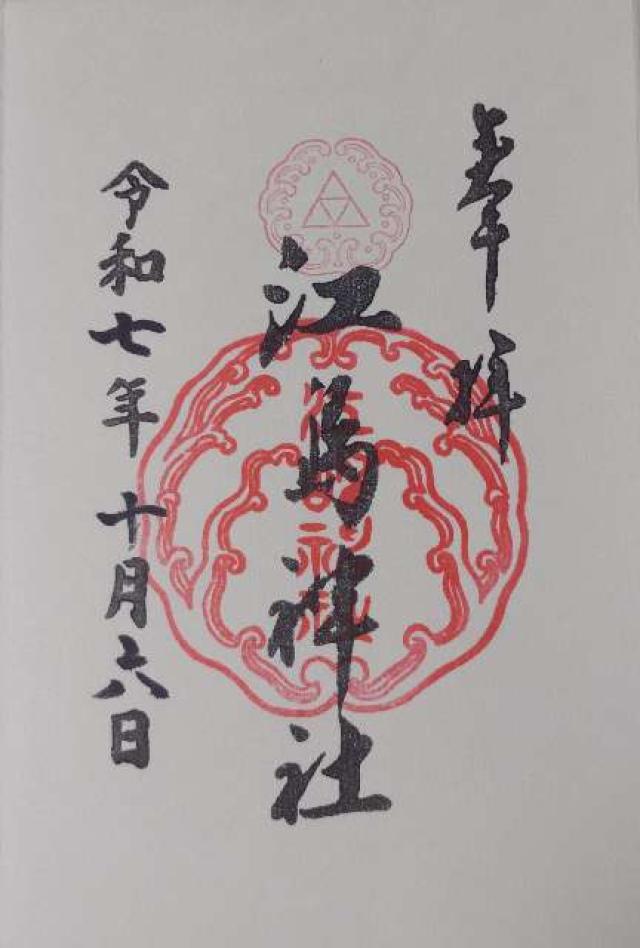 奉拝
江島神社
令和七年十月六日